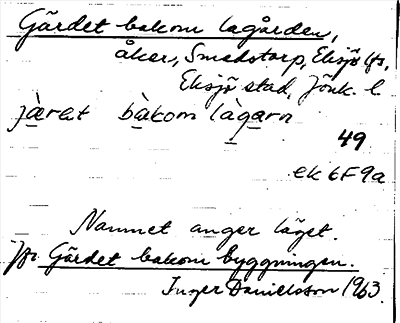 Gärdet bakom lagården,
åker, Smedstorp, Eksjö lfs,
Eksjö stad, Jönk. l
jæ̀ret bàkom làgarn
49
ek 6F9a
Namnet anger läget.
Jfr Gärdet bakom byggningen.
Inger Danielsson 1963.